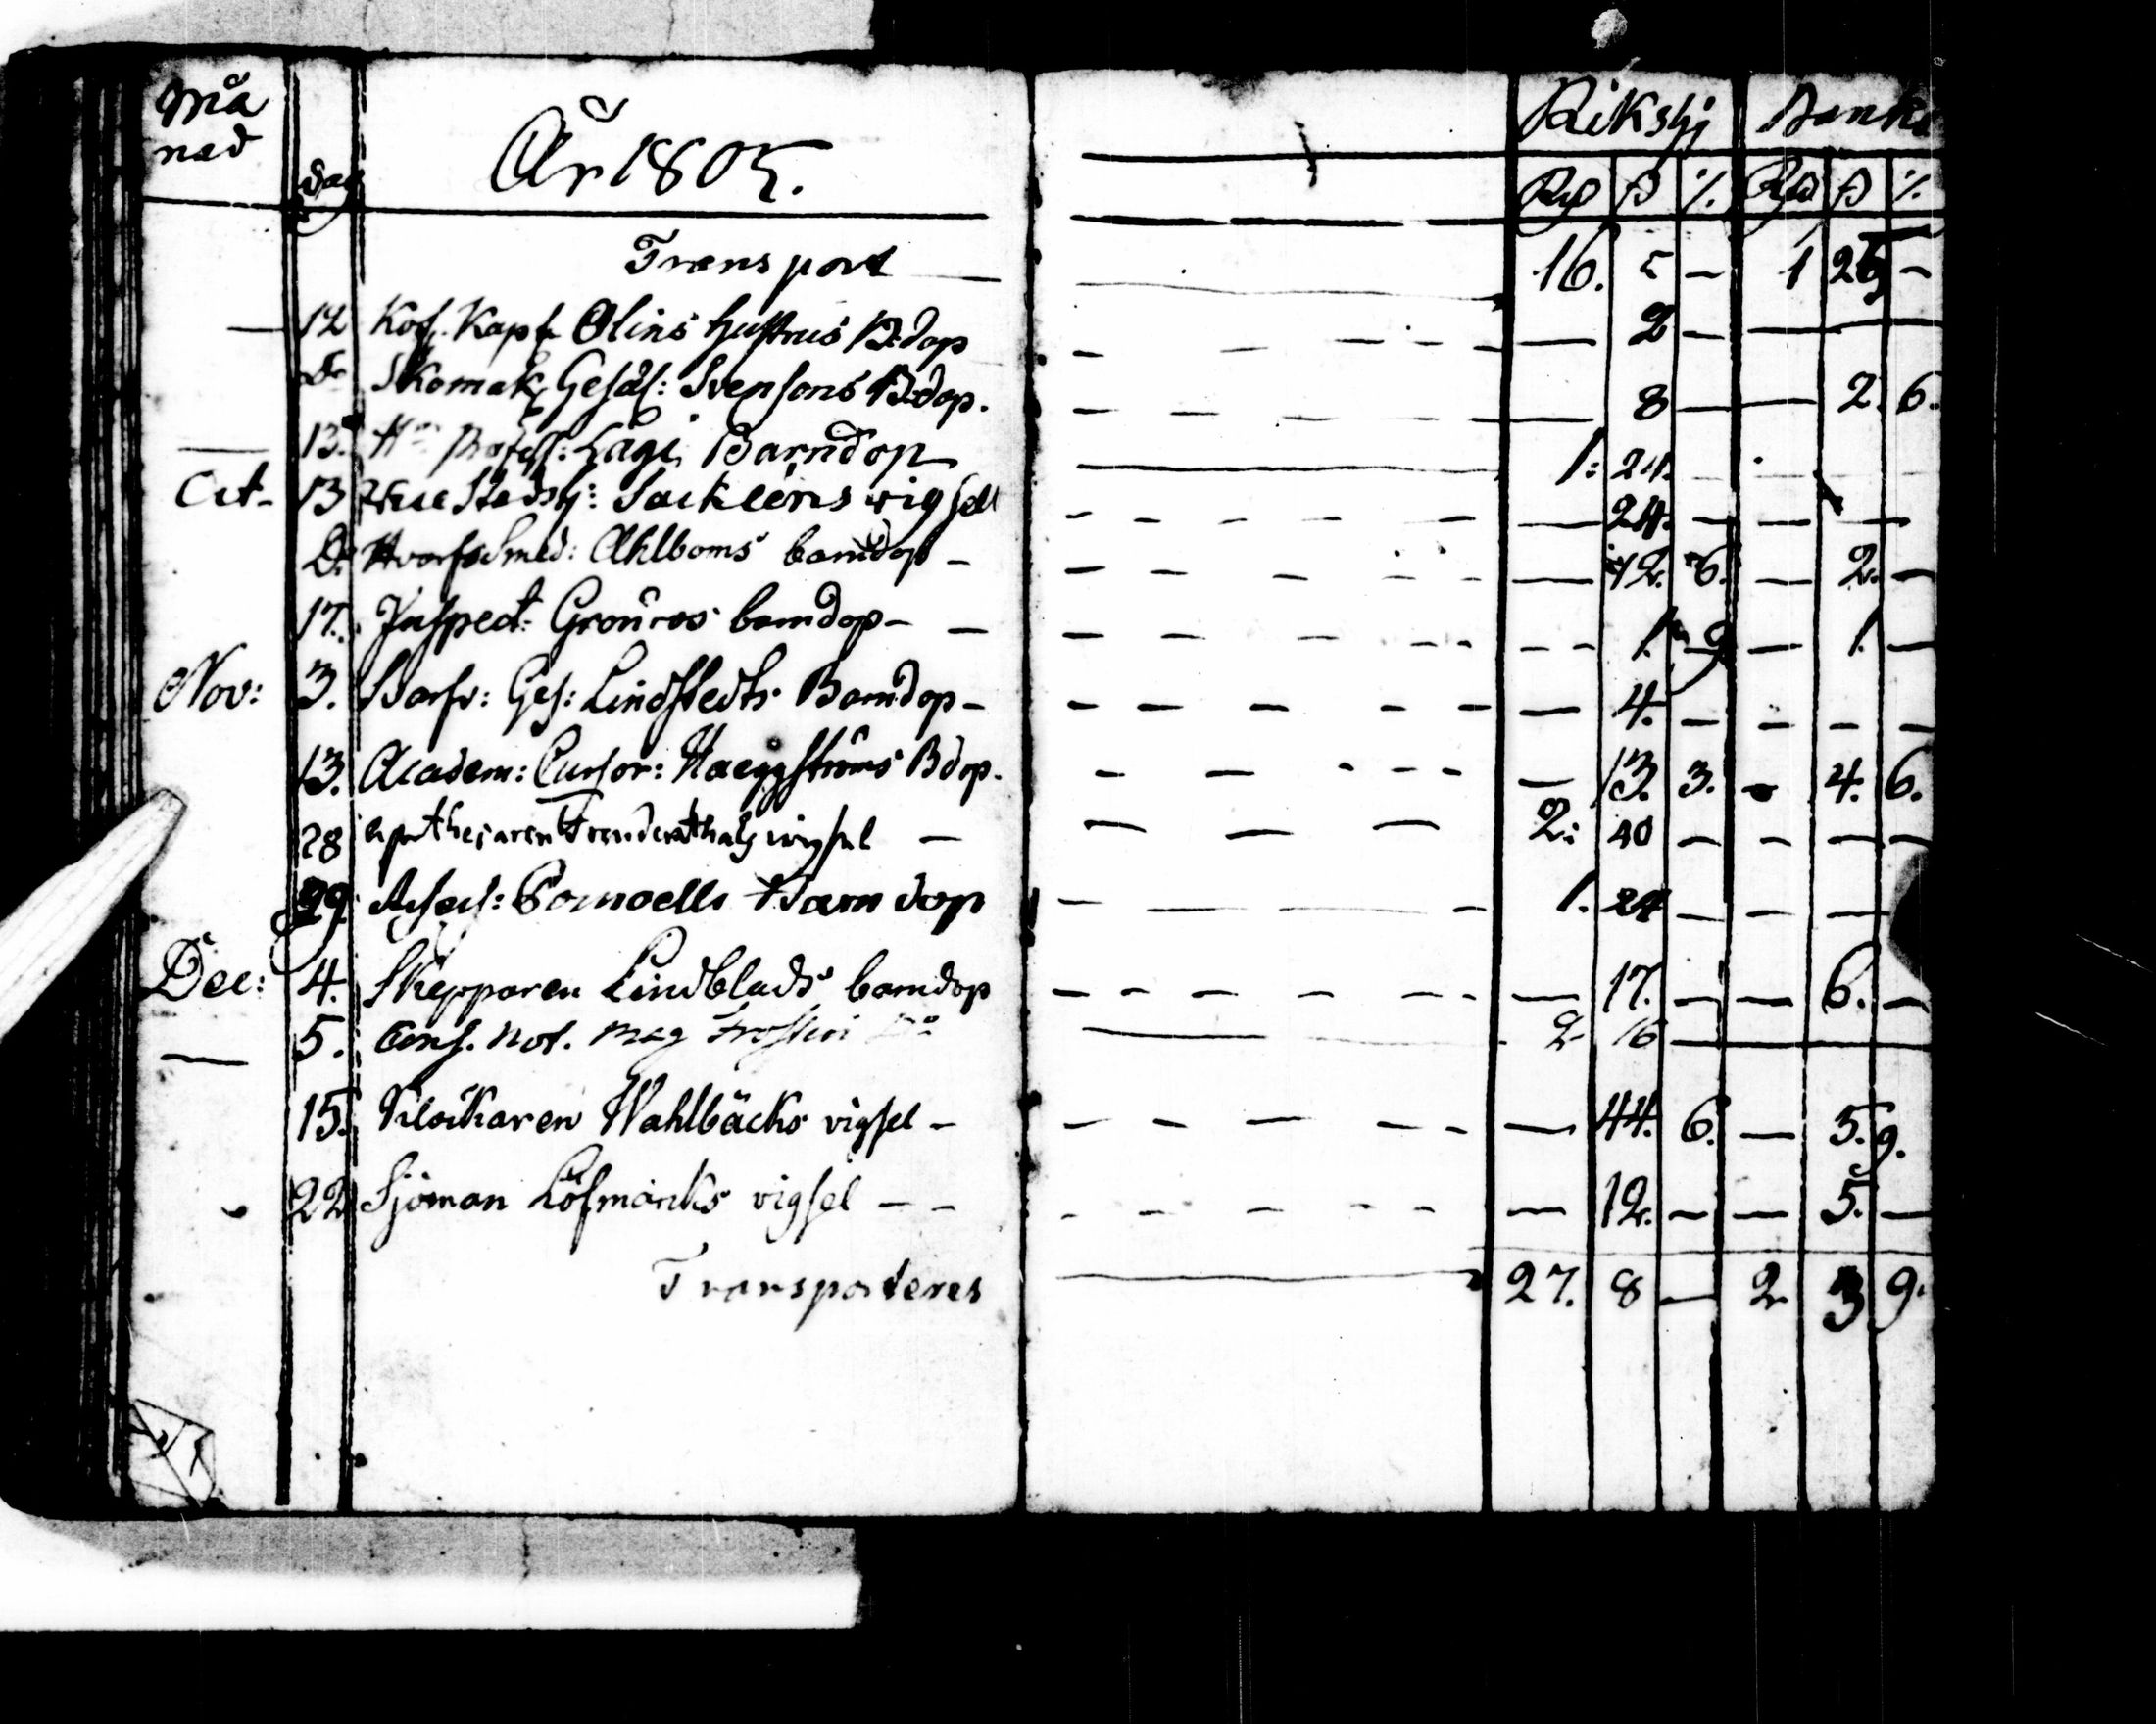 Må nad dag År 1805. Rikshj Banko
Rd ß /. Rd ß /.
Transport 16. 5 — 1 25 —
— 12 Kof. Kapt Olins hustrus B:dop — 2 —
Do Skomak Gesäl: Svensons B:dop. — 8 — — 2. 6.
— 13. Hr Profess: Barndop 1: 24.
Oct. 13 Sackléns vigsell — 24. — — —
Do Ahlboms barndop — — 12. 6. — 2. —
17. Inspect: barndop — — 1. 9 — 1. —
Nov: 3. Garfv: Ges: Lindstedts Barndop — — 4. — — — —
13. Academ: Cursor: Haeggströms Bdop. — 13. 3. — 4. 6.
28 apothecaren vigsel — 2: 40 — — — —
29. Assess: Barndop 1. 24 — — —
Dec: 4. Skepparen Lindblads barndop — 17. — — 6. —
— 5. Cons. Not. Mag Do 2 16 —
15. Klockaren Wahlbäcks vigsel — — 44. 6. — 5. 9.
22 Sjöman Löfmarks vigsel — — — 12. — — 5. —
Transporteres 27. 8 — 2 3 9.